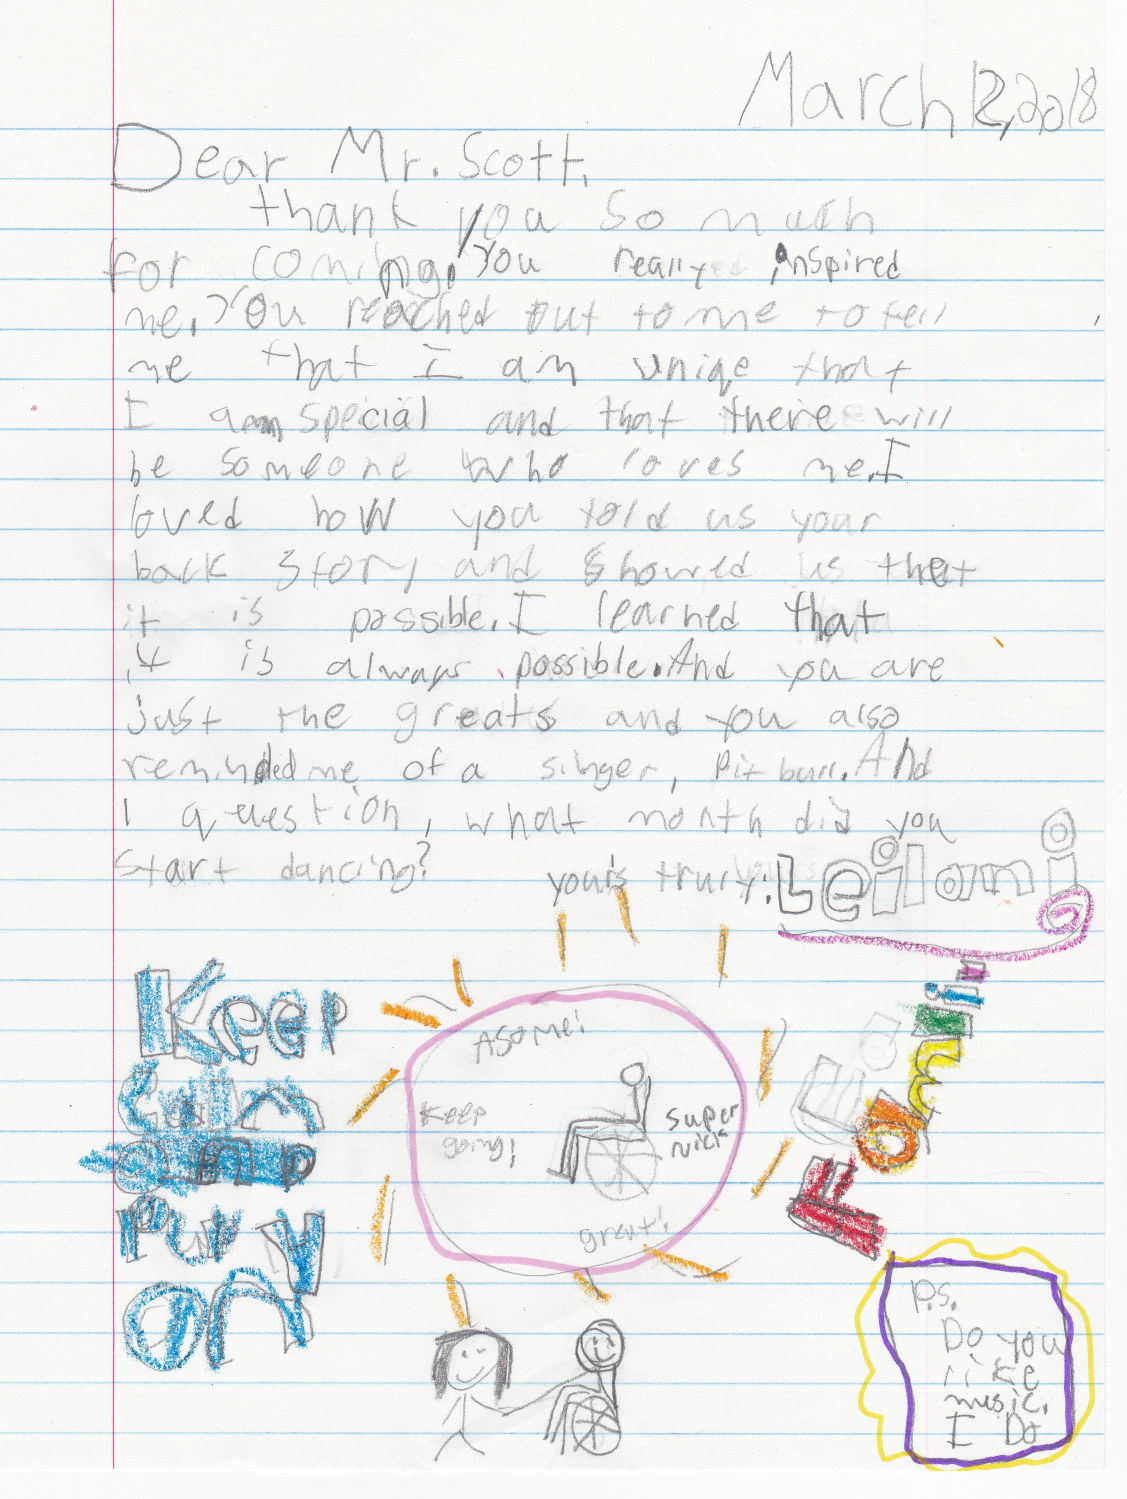 March 12, 2018
Dear Mr. Scott,
thank you so much
for coming. You really inspired
me. You reached out to me to tell
me that I am uniqe that
I am special and that there will
be someone who loves me. I
loved how you told us your
back story and showed us that
it is possible. I learned that
it is always possible. And you are
just the greats and you also
reminded me of a singer, Pit bull. And
1 question, what month did you
start dancing?
yours truly: Leilani
Keep
Calm
and
on
Asome!
Keep
going!
super
nick
great!
P.S.
Do you
like
music.
I Do